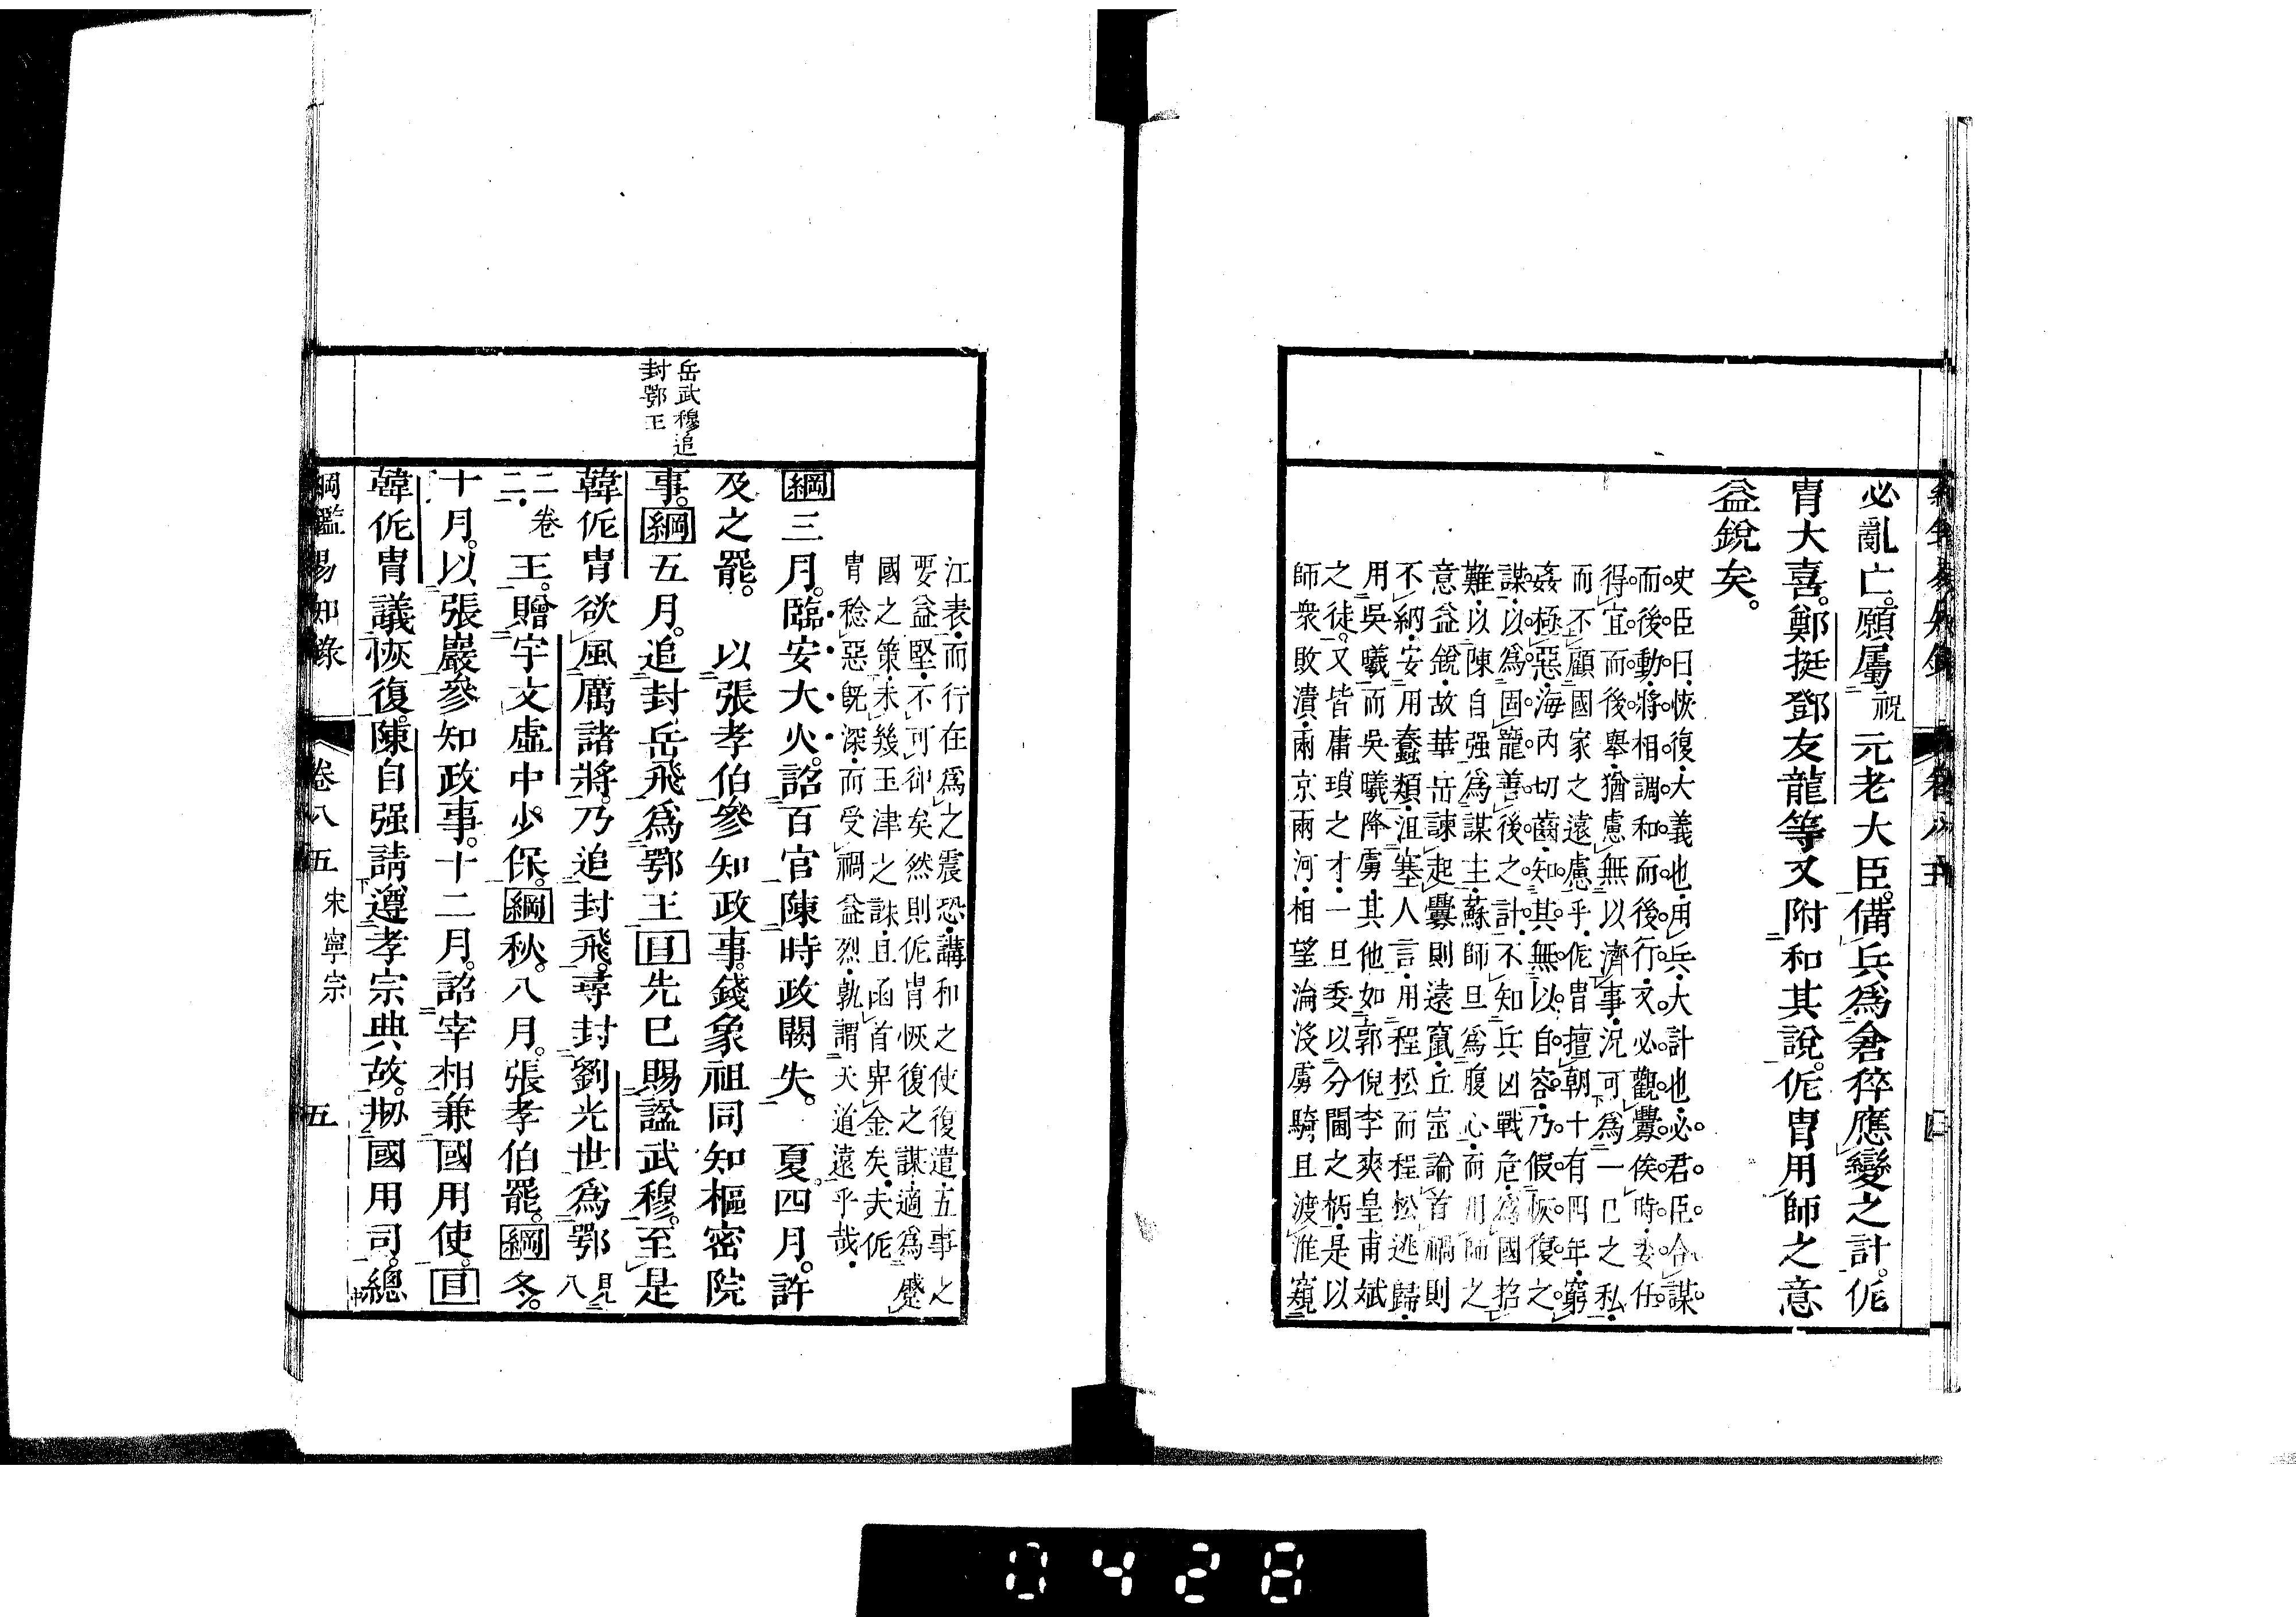 必亂亡。願屬祝元老大臣。備兵爲倉猝應變之計。侂
冑大喜。鄭挺鄧友龍等又附和其說。侂冑用師之意
益銳矣。
史臣曰。恢復大義也。用兵大計也。必君臣合謀
而後動。將相調和而後行。又必觀釁俟時。委任
得宜而後舉。猶慮無以濟事。況可爲一己之私。
而不顧國家之遠慮乎。侂冑擅朝十有四年。窮
姦極惡。海內切齒。知其無以自容。乃假恢復之
謀。以爲固寵善後之計。不知兵凶戰危。爲國招
難。以陳自强爲謀主。蘇師旦爲腹心。而用師之
意益銳。故華岳諫起釁則遠竄。丘崈論首禍則
不納。安用蠢類。沮塞人言。用程松而程松逃歸。
用吳曦而吳曦降虜。其他如郭倪李爽皇甫斌
之徒。又皆庸瑣之才。一旦委以分閫之柄。是以
師衆敗潰。兩京兩河。相望淪沒。虜騎且渡淮窺
江表。而行在爲之震恐。講和之使復遣。五事之
要益堅。不可卻矣。然則侂冑恢復之謀。適爲蹙
國之策。未幾玉津之誅。且函首畀金矣。夫侂
冑稔惡旣深。而受禍益烈。孰謂天道遠乎哉。
岳武穆追
封鄂王
綱三月。臨安大火。詔百官陳時政闕失。 夏四月。許
及之罷。 以張孝伯參知政事。錢象祖同知樞密院
事。綱五月。追封岳飛爲鄂王目先已賜諡武穆。至是
韓侂冑欲風厲諸將。乃追封飛。尋封劉光世爲鄂見八
二卷二王。贈宇文虛中少保。綱秋。八月。張孝伯罷。綱冬。
十月。以張巖參知政事。十二月。詔宰相兼國用使。目
韓侂冑議恢復。陳自强請遵孝宗典故。刱國用司。總
綱鑑易知錄 卷八五 宋寧宗 五